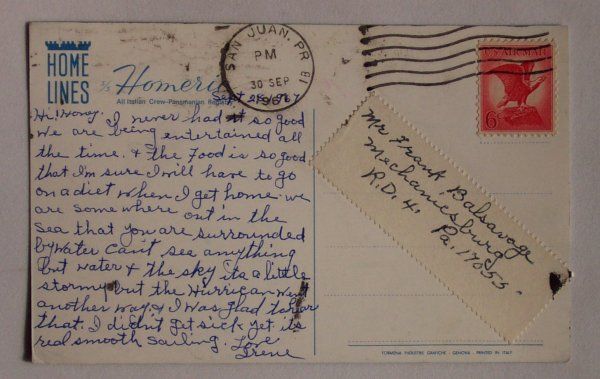 HOME
LINES
S/S Homeric
All Italian Crew-Panamanian Registry
Sept 28/1967
Hi! Honey, I never had it so good
we are being entertained all
the time. & the Food is so good
that I'm sure I will have to go
on a diet when I get home. we
are some where out in the
sea that you are surrounded
by water cant see anything
but water & the sky its a little
stormy but the Hurrican went
another way. & I was glad to hear
that. I didn't get sick yet its
real smooth sailing. Love
Irene
SAN JUAN, PR
PM
30 SEP
1967
U.S. AIRMAIL
6¢
Mr Frank Balsavage
Mechanicsburg
R.D. 4.
Pa. 17055
FORMENA INDUSTRIE GRAFICHE - GENOVA - PRINTED IN ITALY